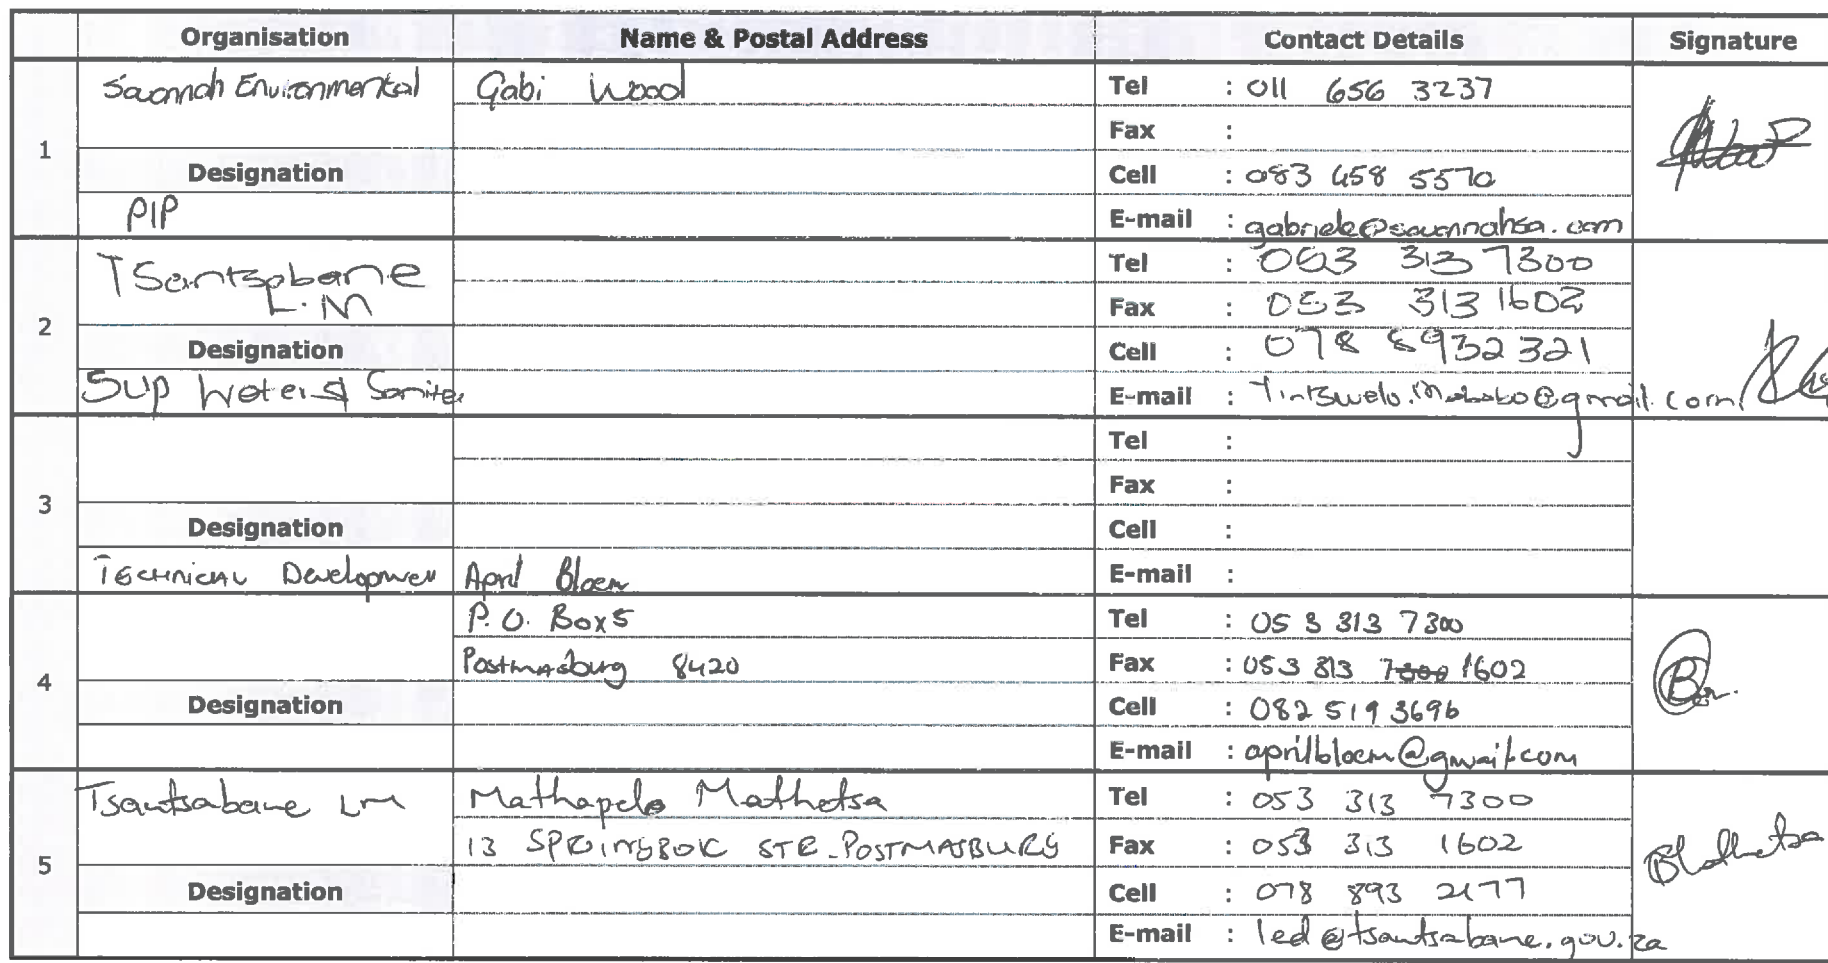 Organisation Name & Postal Address Contact Details Signature
1
Savannah Environmental
Gabi Wood
Tel : 011 656 3237
Fax :
Designation
Cell : 083 458 5570
PIP
E-mail : gabriele@savannahsa.com
2
Tsantsabane
L.M
Tel : 053 313 7300
Fax : 053 313 1602
Designation
Cell : 078 8932321
Sup Water &
E-mail : Tintswelo.Mababo@gmail.com
3
Tel :
Fax :
Designation
Cell :
Technical Developmen April Bloem
E-mail :
4
P.O. Box 5
Tel : 053 313 7300
Postmasburg 8420
Fax : 053 313 7300 1602
Designation
Cell : 082 519 3696
E-mail : aprilbloem@gmail.com
5
Tsantsabane LM
Mathapelo Mathetsa
Tel : 053 313 7300
13 SPRINGBOK STR. POSTMASBURG
Fax : 053 313 1602
Designation
Cell : 078 893 2177
E-mail : led@tsantsabane.gov.za